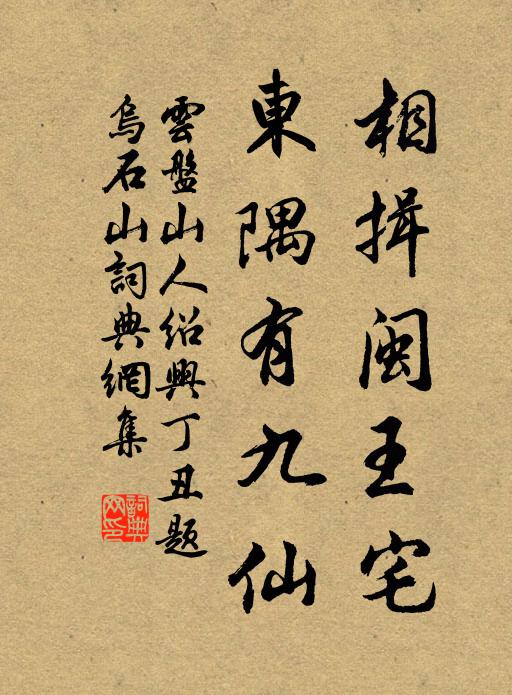 相揖闽王宅
東隅有九仙
雲盤山人绍興丁丑题
烏石山詞典網集
詞典網印